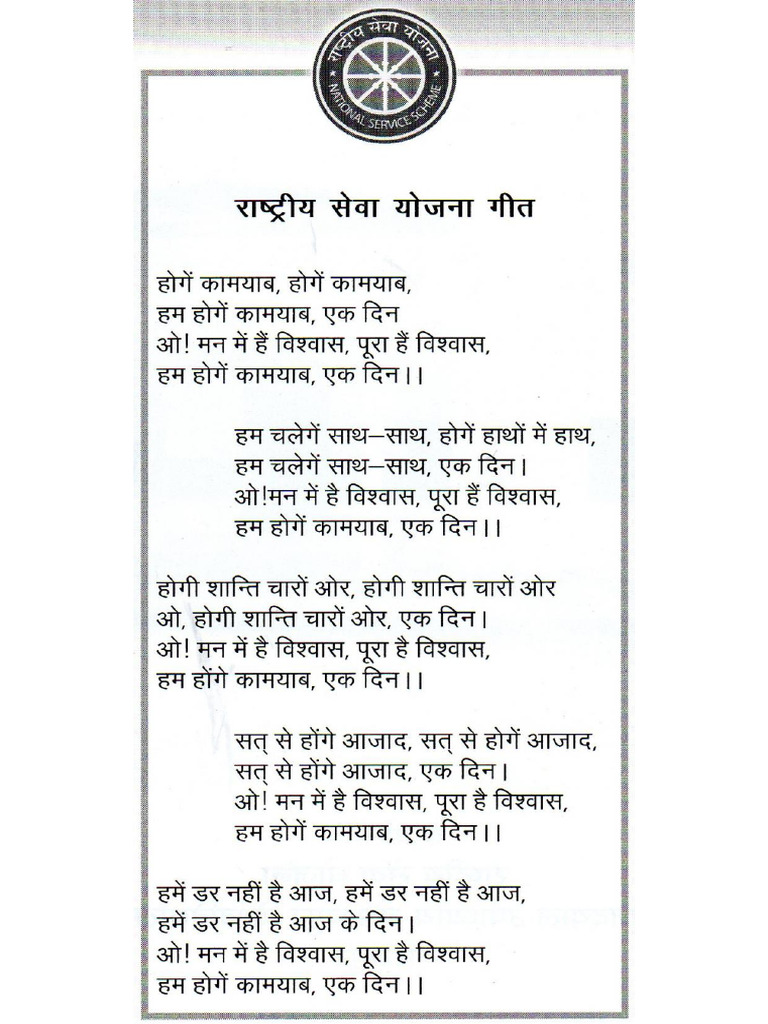 राष्ट्रीय सेवा योजना
NATIONAL SERVICE SCHEME
राष्ट्रीय सेवा योजना गीत
होगें कामयाब, होगें कामयाब,
हम होगें कामयाब, एक दिन
ओ! मन में हैं विश्वास, पूरा हैं विश्वास,
हम होगें कामयाब, एक दिन।।
हम चलेगें साथ–साथ, होगें हाथों में हाथ,
हम चलेगें साथ–साथ, एक दिन।
ओ!मन में है विश्वास, पूरा हैं विश्वास,
हम होगें कामयाब, एक दिन।।
होगी शान्ति चारों ओर, होगी शान्ति चारों ओर
ओ, होगी शान्ति चारों ओर, एक दिन।
ओ! मन में है विश्वास, पूरा है विश्वास,
हम होंगे कामयाब, एक दिन।।
सत् से होंगे आजाद, सत् से होगें आजाद,
सत् से होंगे आजाद, एक दिन।
ओ! मन में है विश्वास, पूरा है विश्वास,
हम होगें कामयाब, एक दिन।।
हमें डर नहीं है आज, हमें डर नहीं है आज,
हमें डर नहीं है आज के दिन।
ओ! मन में है विश्वास, पूरा है विश्वास,
हम होगें कामयाब, एक दिन।।